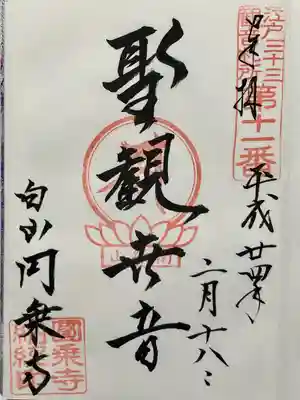 江戸三十三
観音札所
第十一番
奉拝
平成廿四年
二月十八日
聖観世音
白山円乗寺
圓乗寺